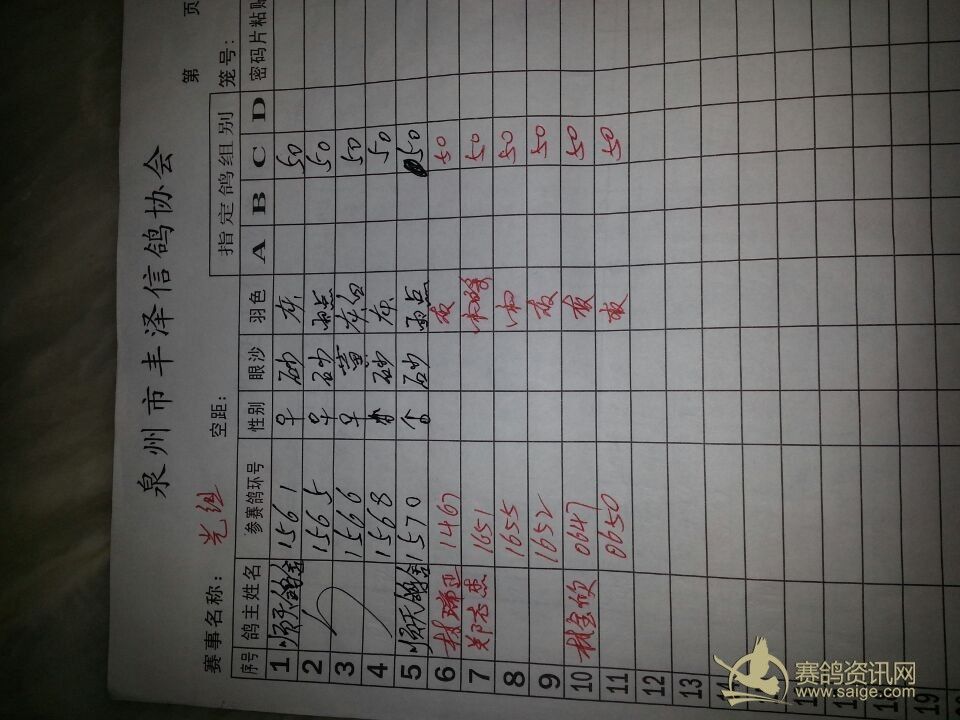 泉州市丰泽信鸽协会
赛事名称： 空距： 第 页
指定鸽组别 笼号：
序号 鸽主姓名 参赛鸽环号 性别 眼沙 羽色 A B C D 密码片粘贴
1 顺天鸽舍 1561 ♀ 砂 灰 50
2 1565 ♀ 砂 雨点 50
3 1566 ♀ 黄 灰白 50
4 1568 砂 灰 50
5 顺天鸽舍 1570 砂 雨点 50
6 1467 50
7 郑志杰 1651 50
8 1655 50
9 1652 50
10 林金欣 0647 50
11 0650 50
12
13
14
19
赛鸽资讯网
www.saige.com